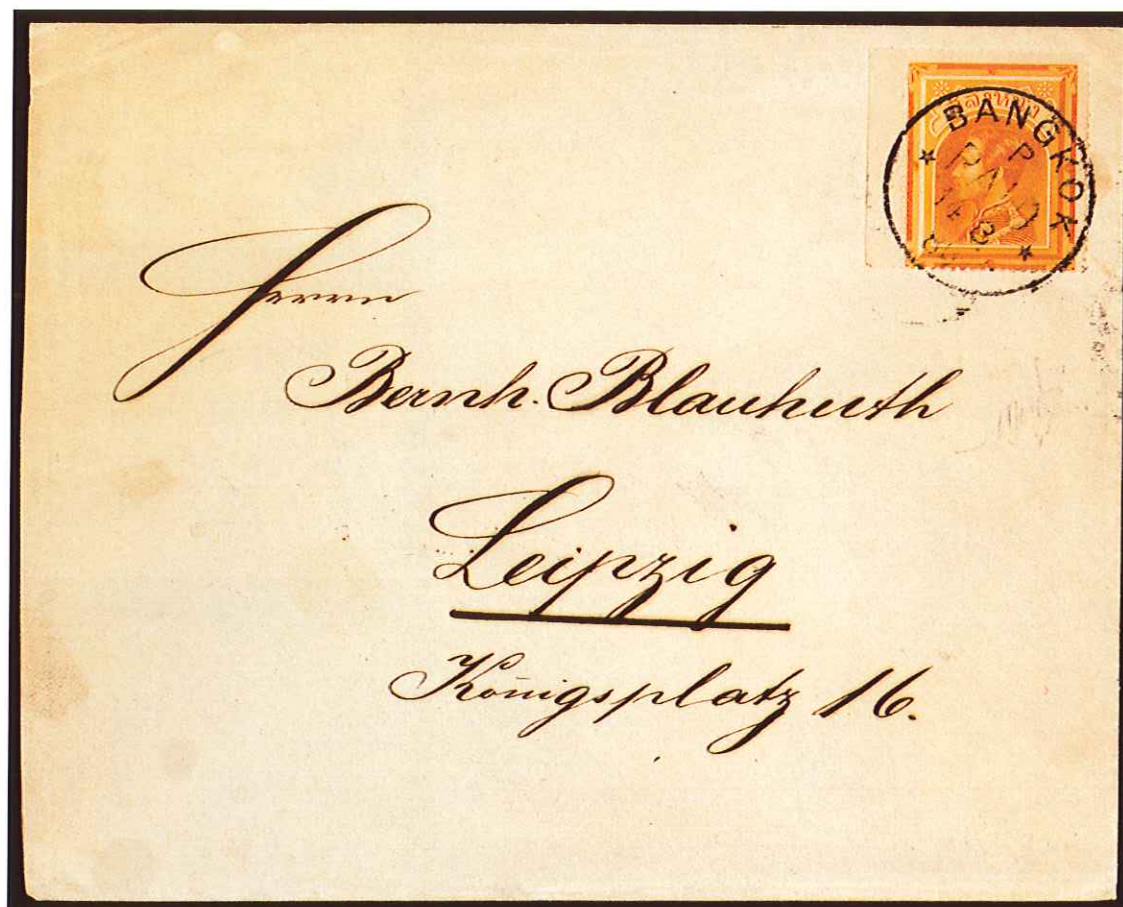 BANGKOK
P
PAID
14
8
Herrn
Bernh. Blauhuth
Leipzig
Königsplatz 16.